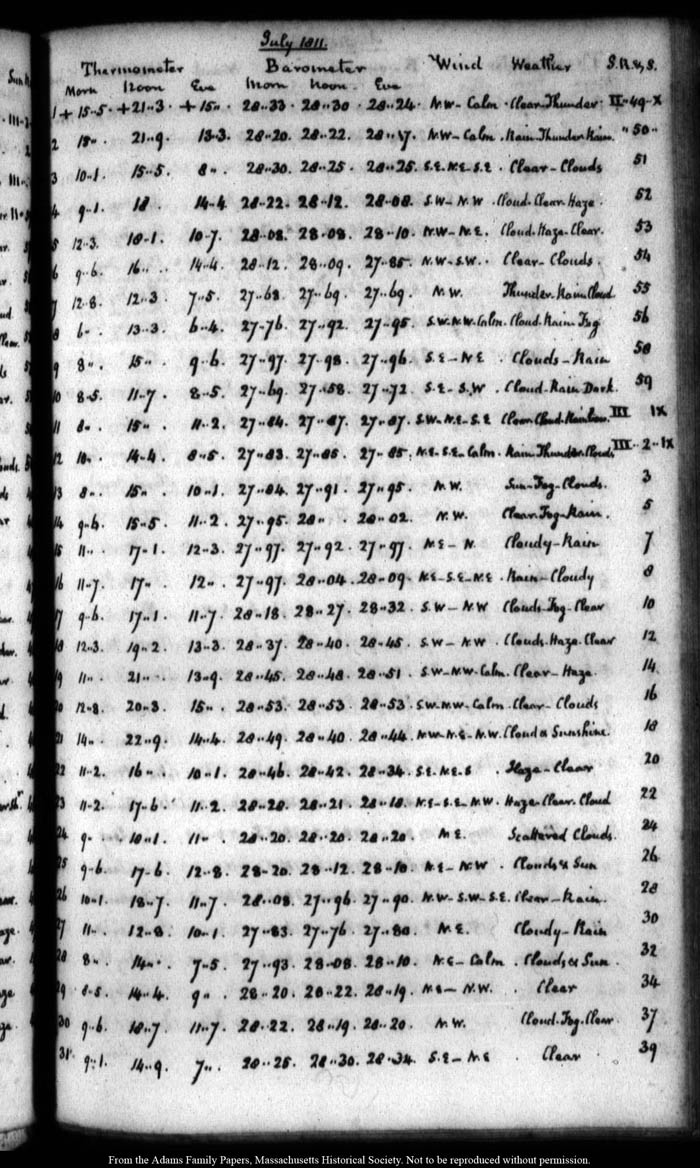 July 1811.
Thermometer Barometer Wind Weather S.R. & S.
Morn Noon Eve Morn Noon Eve
1 + 15..5 + 21..3 + 15.. 28..33 28..30 28..24 N.W - Calm Clear. Thunder II..49..X
2 15.. 21..9 13..3 28..20 28..22 28..17 N.W - Calm Rain. Thunder Rain "50"
3 10..1 15..5 8.. 28..30 28..25 28..25 S.E. N.E. S.E. Clear - Clouds 51
4 9..1 18 14..4 28..22 28..12 28..08 S.W - N.W Cloud. Clear. Haze 52
5 12..3 18..1 10..7 28..08 28..08 28..10 N.W - N.E. Cloud. Haze. Clear 53
6 9..6 16.. 14..4 28..12 28..09 27..85 N.W - S.W. Clear - Clouds 54
7 12..8 12..3 7..5 27..68 27..69 27..69 N.W. Thunder. Rain Cloud 55
8 6.. 13..3 6..4 27..76 27..92 27..95 S.W. N.W. Calm Cloud. Rain. Fog 56
9 8.. 15.. 9..6 27..97 27..98 27..96 S.E - N.E Clouds - Rain 58
10 8..5 11..7 8..5 27..69 27..58 27..72 S.E - S.W Cloud. Rain Dark 59
11 8.. 15.. 11..2 27..84 27..87 27..87 S.W - N.E. - S.E Clear. Cloud. Rainbow III IX
12 10.. 14..4 8..5 27..83 27..85 27..85 N.E. - S.E. - Calm Rain. Thunder. Clouds III..2..IX
13 8.. 15.. 10..1 27..84 27..91 27..95 N.W. Sun - Fog - Clouds 3
14 9..6 15..5 11..2 27..95 28.. 28..02 N.W. Clear. Fog - Rain 5
15 11.. 17..1 12..3 27..97 27..92 27..97 N.E - N. Cloudy - Rain 7
16 11..7 17.. 12.. 27..97 28..04 28..09 N.E - S.E - N.E Rain - Cloudy 8
17 9..6 17..1 11..7 28..18 28..27 28..32 S.W - N.W Clouds. Fog - Clear 10
18 12..3 19..2 13..3 28..37 28..40 28..45 S.W - N.W Clouds. Haze. Clear 12
19 11.. 21.. 13..9 28..45 28..48 28..51 S.W - N.W - Calm Clear - Haze 14
20 12..8 20..3 15.. 28..53 28..53 28..53 S.W. N.W. Calm Clear - Clouds 16
21 14.. 22..9 14..4 28..49 28..40 28..44 N.W - N.E - N.W. Cloud & Sunshine 18
22 11..2 16.. 10..1 28..46 28..42 28..34 S.E. N.E. S Haze - Clear 20
23 11..2 17..6 11..2 28..28 28..21 28..18 N.E - S.E - N.W. Haze. Clear. Cloud 22
24 9.. 10..1 11.. 28..20 28..20 28..20 N.E. Scattered Clouds 24
25 9..6 17..6 12..8 28..20 28..12 28..10 N.E - N.W Clouds & Sun 26
26 10..1 18..7 11..7 28..08 27..96 27..90 N.W - S.W - S.E. Clear - Rain 28
27 11.. 12..8 10..1 27..83 27..76 27..80 N.E. Cloudy - Rain 30
28 8.. 14.. 7..5 27..93 28..08 28..10 N.E - Calm Clouds & Sun 32
29 8..5 14..4 9.. 28..20 28..22 28..19 N.E - N.W. Clear 34
30 9..6 18..7 11..7 28..22 28..19 28..20 N.W. Cloud. Fog. Clear 37
31 9..1 14..9 7.. 28..25 28..30 28..34 S.E - N.E Clear 39
From the Adams Family Papers, Massachusetts Historical Society. Not to be reproduced without permission.